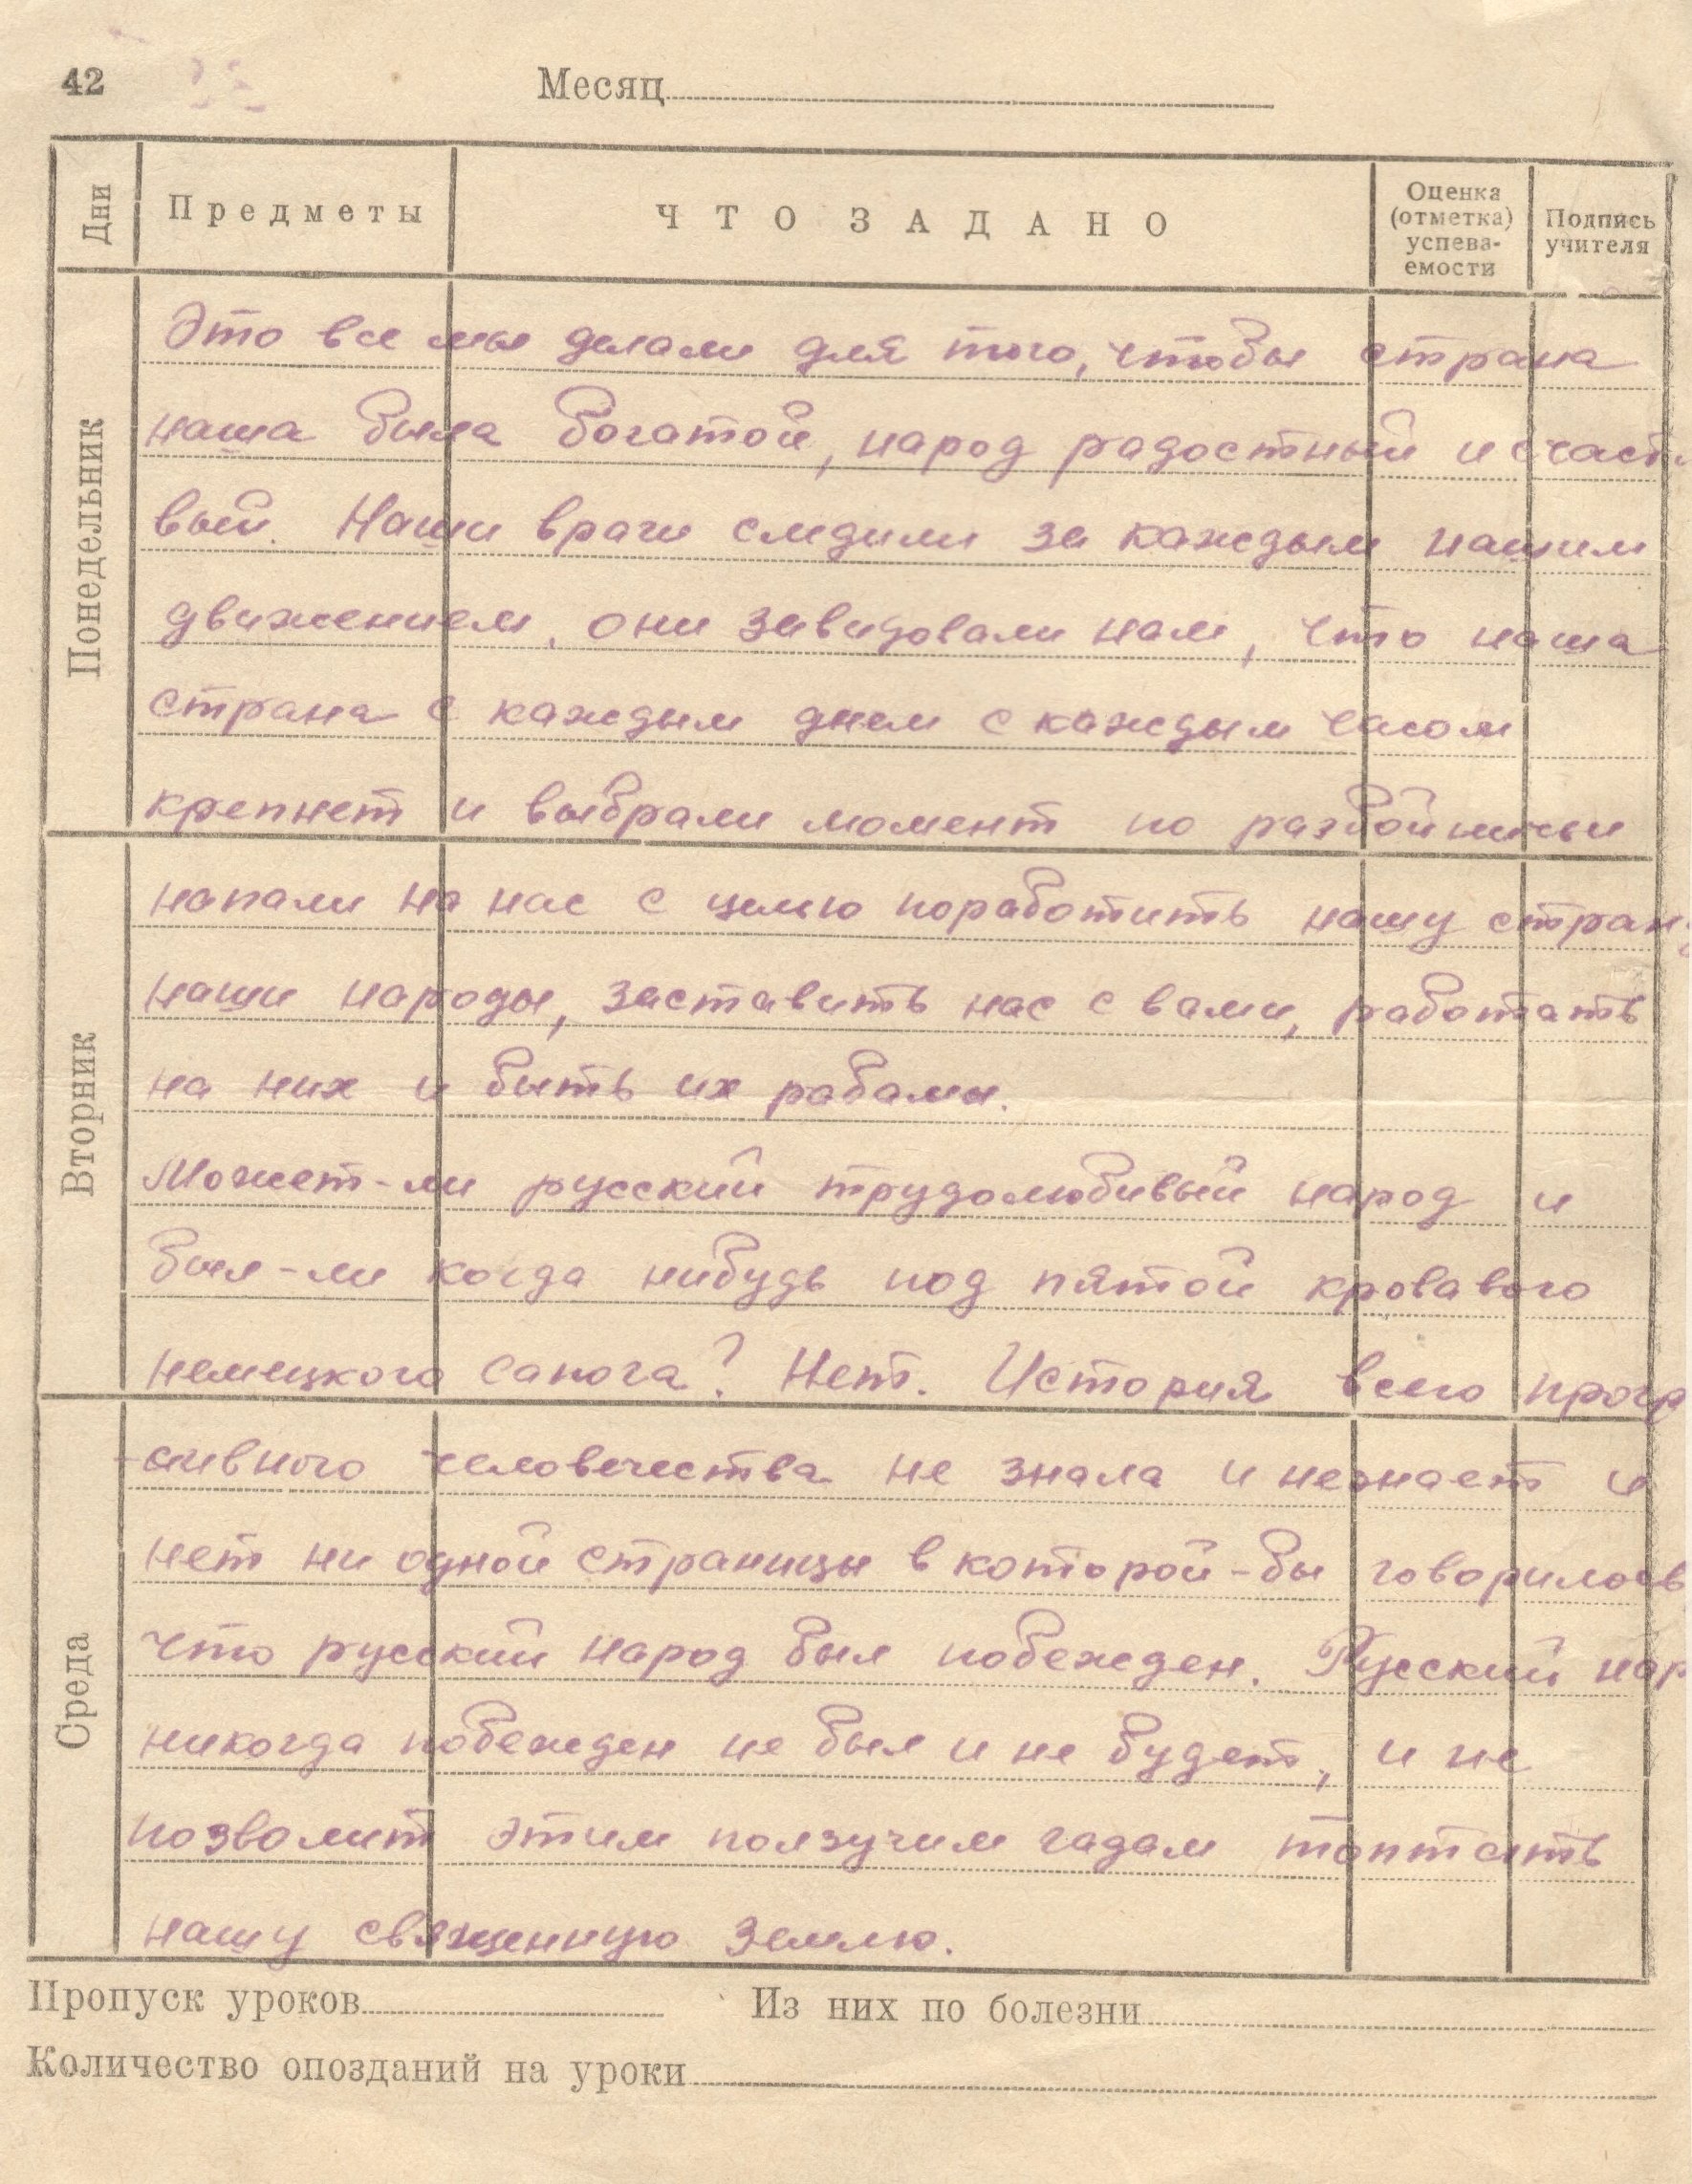 42
Месяц
Дни
Предметы
ЧТО ЗАДАНО
Оценка (отметка) успева-емости
Подпись учителя
Понедельник
Это все мы делали для того, чтобы страна
наша была богатой, народ радостный и счаст
вый. Наши враги следили за каждым нашим
движением, они завидовали нам, что наша
страна с каждым днем с каждым часом
крепнет и выбрали момент по разбойничьи
Вторник
напали на нас с целью поработить нашу стран
наши народы, заставить нас с вами, работать
на них и быть их рабами.
Может-ли русский трудолюбивый народ и
был-ли когда нибудь под пятой кровавого
немецкого сапога? Нет. История всего прогр
Среда
сивного человечества не знала и незнает и
нет ни одной страницы в которой-бы говорилось
что русский народ был побежден. Русский нар
никогда побежден не был и не будет, и не
позволит этим ползучим гадам топтать
нашу священную землю.
Пропуск уроков
Из них по болезни
Количество опозданий на уроки